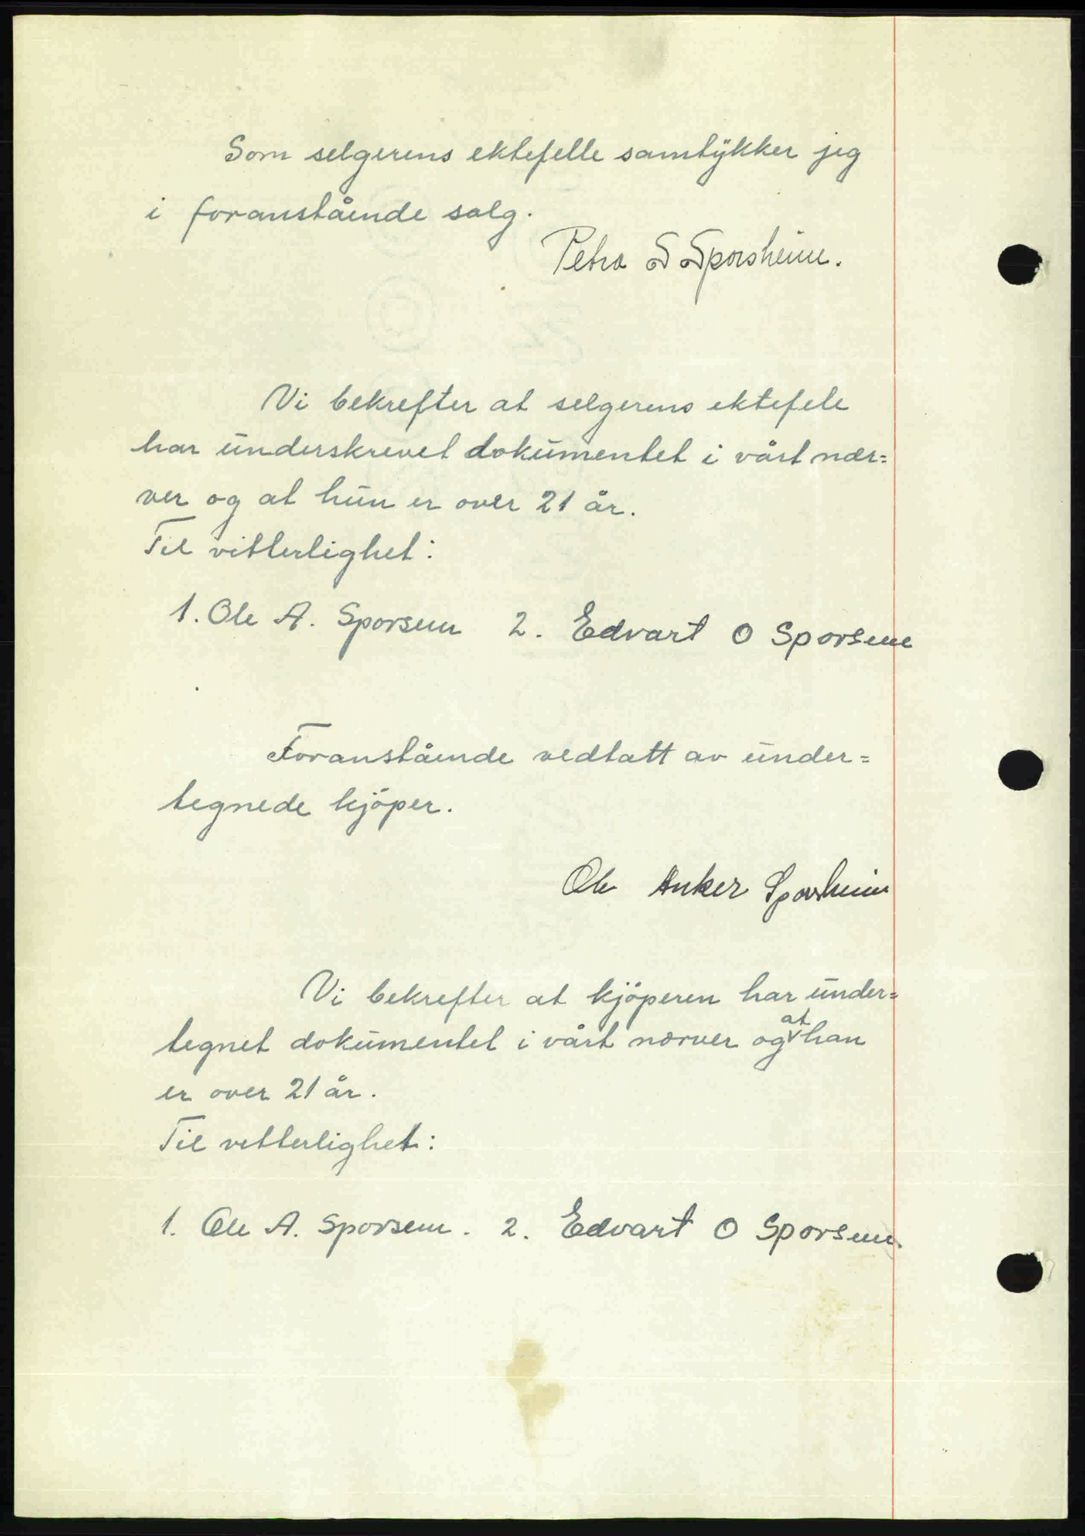 Som selgerens ektefelle samtykker jeg
i foranstående salg.
Petra S Sporsheim.
Vi bekrefter at selgerens ektefele
har underskrevet dokumentet i vårt nær=
ver og at hun er over 21 år.
Til vitterlighet:
1. Ole A. Sporsem 2. Edvart O Sporsem
Foranstående vedtatt av under=
tegnede kjöper.
Ole Anker Sporsheim
Vi bekrefter at kjöperen har under=
tegnet dokumentet i vårt nærver og at han
er over 21 år.
Til vitterlighet:
1. Ole A. Sporsem. 2. Edvart O Sporsem.